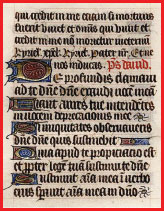 qui credit in me etiam si mortuus
fuerit vivet et omnis qui vivit et
credit in me non morietur in eternū
Kyriel. xpēel. Kyriel. Pater nr̄. Et ne
nos inducas. Ps david.
De profundis clamavi
ad te dn̄e dn̄e exaudi vocē meā
Fiant aures tue intendētes
in vocem deprecationis mee
Si iniquitates observaveris
dn̄e dn̄e quis sustinebit
Quia apud te propiciatio est
et propter legē tuā sustinui te dn̄e
Sustinuit aīa mea in verbo
eius speravit aīa mea in dn̄o